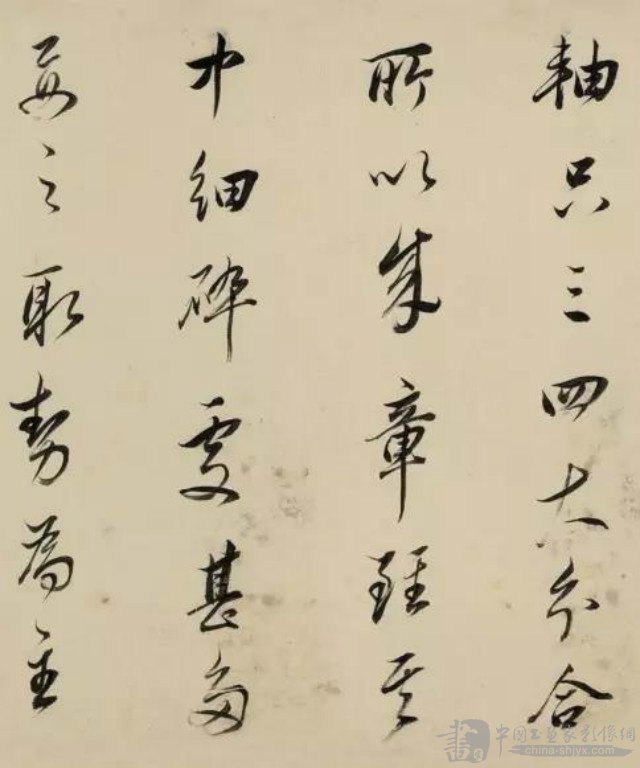 軸只三四大分合
所以成章雖其
中細碎處甚多
要之取勢為主
中國书画家影像網
china-shjyx.com